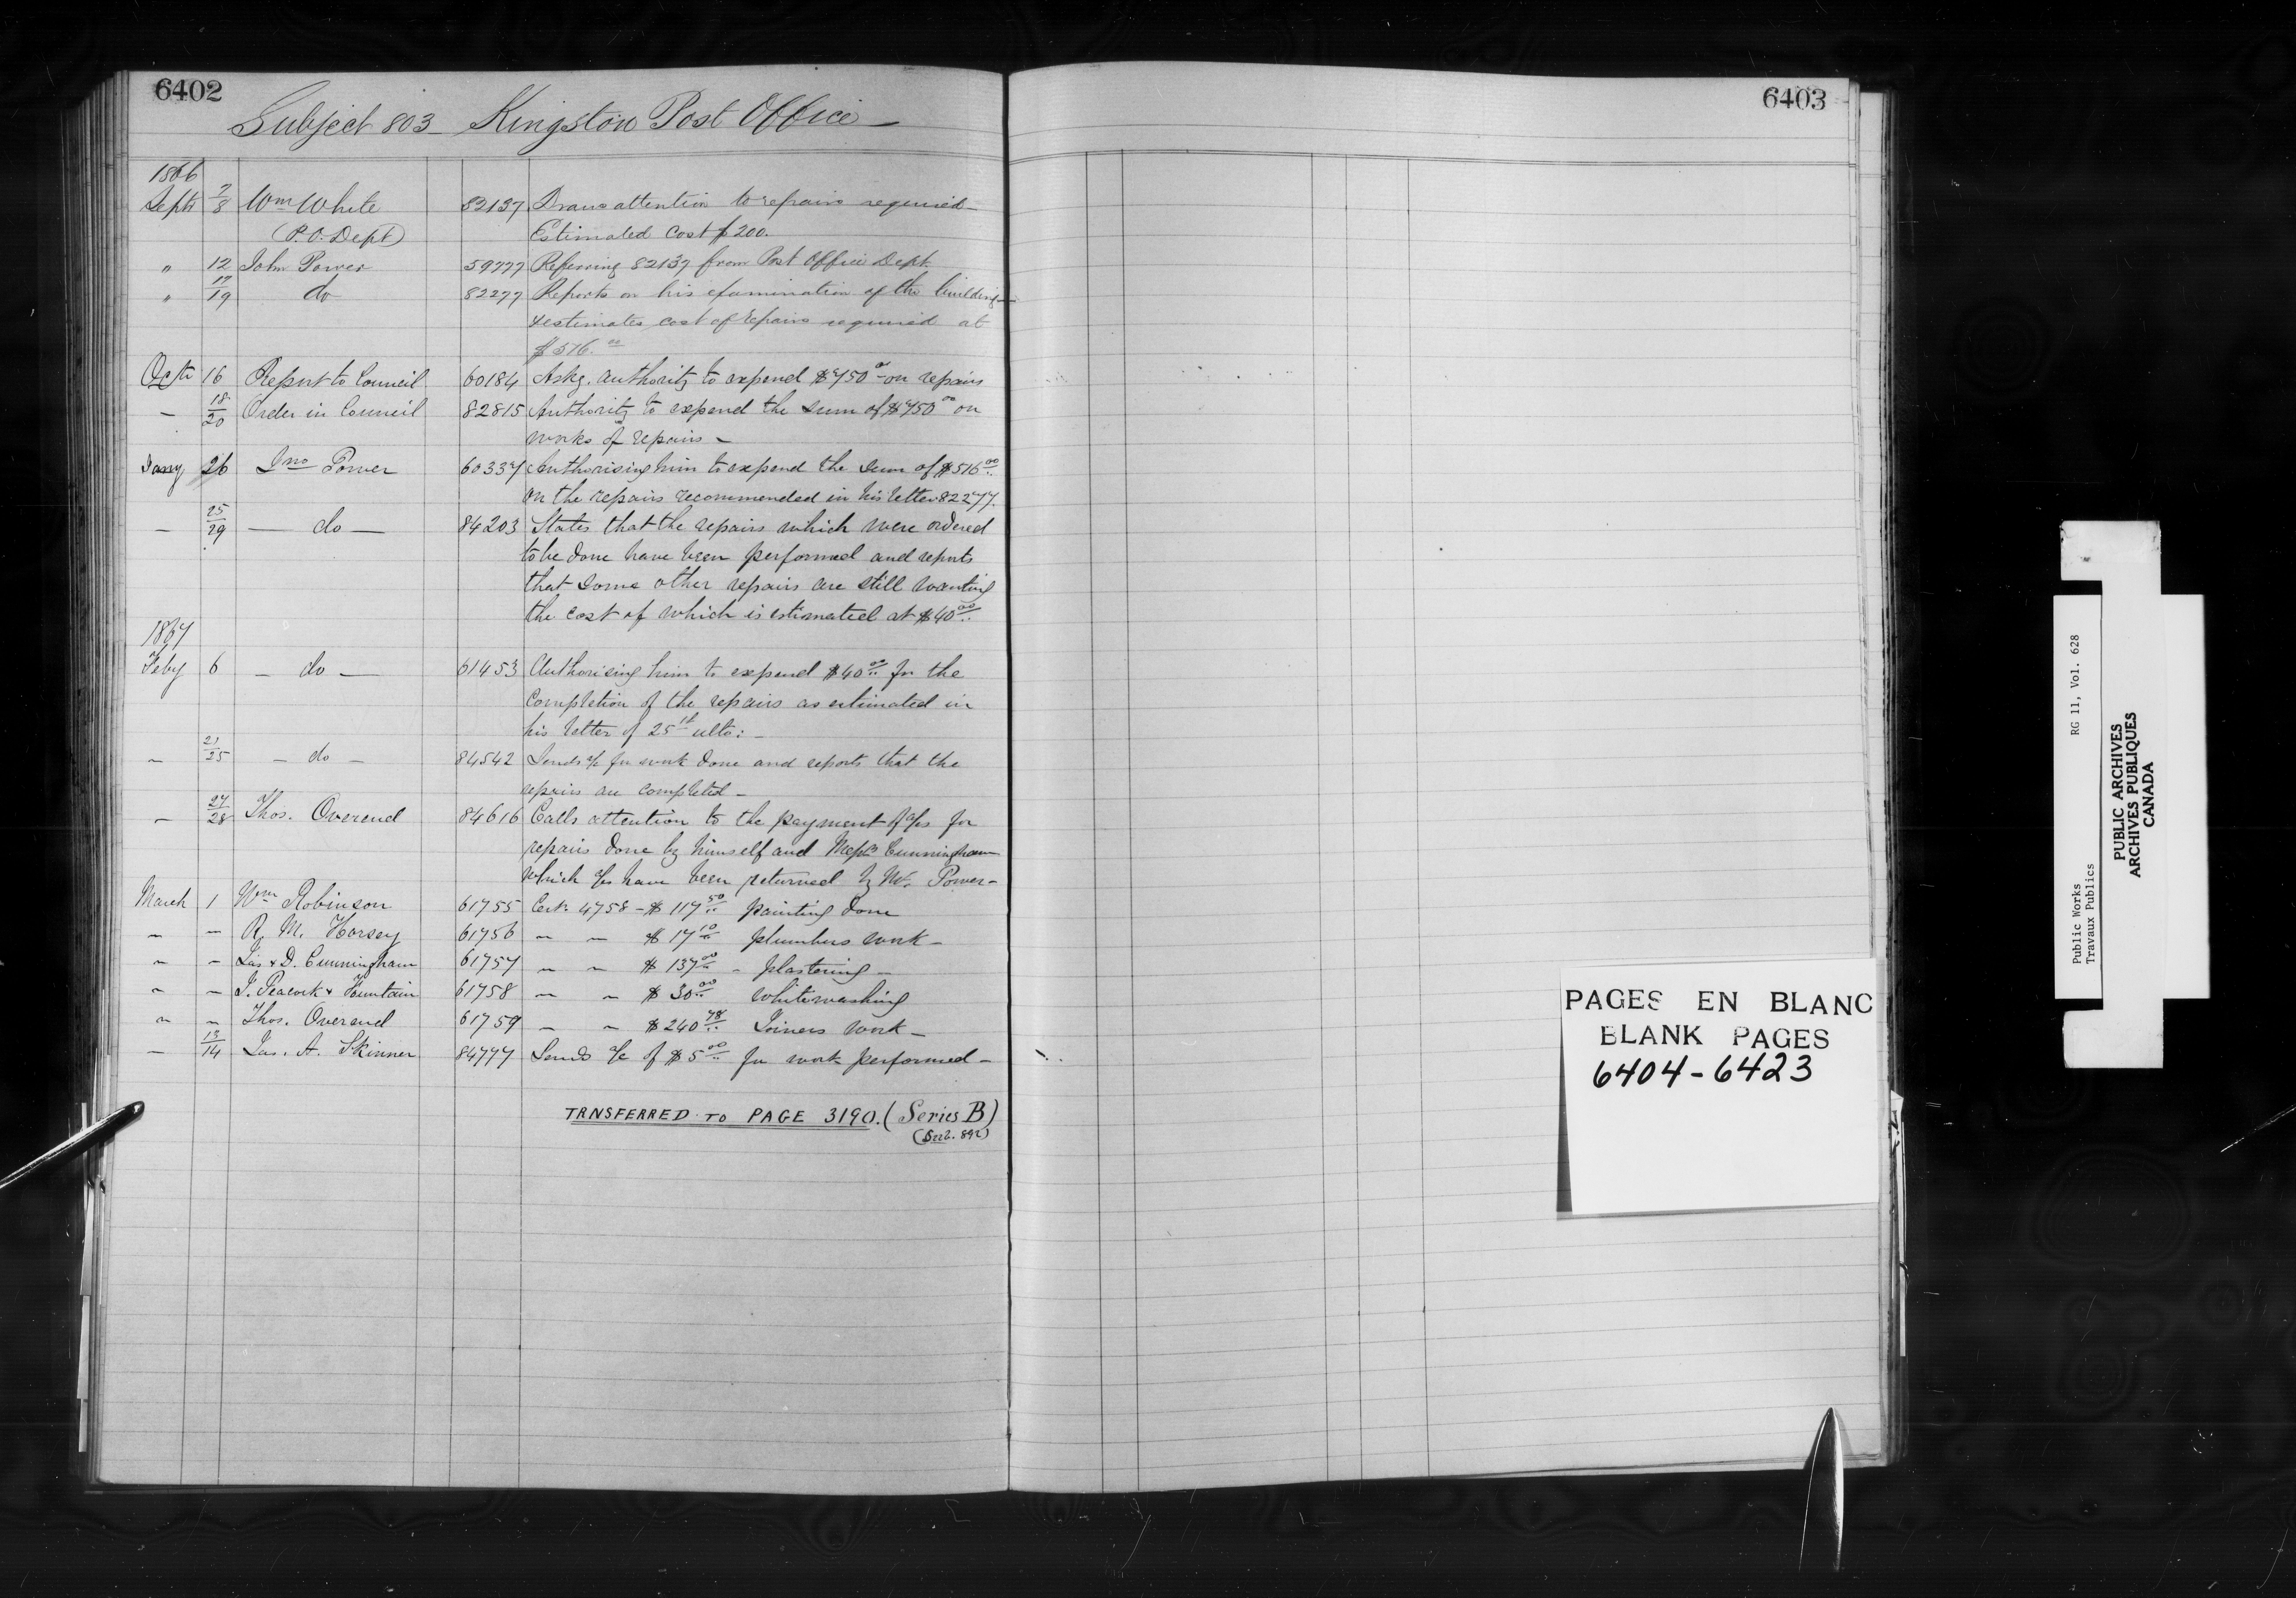 6402
Subject 803 Kingston Post Office
1866
Septr 7/8 Wm White 82137 Draws attention to repairs required
(P.O. Dept) Estimated cost $200.
" 12 John Power 59777 Referring 82137 from Post Office Dept.
" 17/19 do 82277 Reports on his examination of the building
& estimates cost of repairs required at
$576.00
Octr 16 Report to Council 60184 Askg. authority to expend $750 00 on repairs
— 18/20 Order in Council 82815 Authority to expend the sum of $750 00 on
works of repairs —
Jany 26 Jno Power 60337 Authorising him to expend the sum of $576 00
on the repairs recommended in his letter 82277.
— 25/29 — do — 84203 States that the repairs which were ordered
to be done have been performed and reports
that some other repairs are still wanting
the cost of which is estimated at $40 00
1867
Feby 6 — do — 61453 Authorising him to expend $40 00 for the
completion of the repairs as estimated in
his letter of 25th ulto: —
— 21/25 — do — 84542 Sends a/c for work done and reports that the
repairs are completed —
— 27/28 Thos. Overend 84616 Calls attention to the payment of a/cs for
repairs done by himself and Messrs Cunningham
which a/cs have been returned by Mr. Power —
March 1 Wm Robinson 61755 Cert. 4758 — $117 50 painting done
— — R. M. Horsey 61756 — — $17 10 plumbers work —
— — Jas & D. Cunningham 61757 — — $137 00 — plastering —
— — J. Peacock & Fountain 61758 — — $30 00 whitewashing
— — Thos. Overend 61759 — — $240 78 Joiners work —
— 13/14 Jas. A. Skinner 84777 Sends a/c of $5 00 for work performed —
TRNSFERRED TO PAGE 3190. (Series B)
(Sub. 892)
6403
PAGES EN BLANC
BLANK PAGES
6404-6423
Public Works RG 11, Vol. 628
Travaux Publics
PUBLIC ARCHIVES
ARCHIVES PUBLIQUES
CANADA